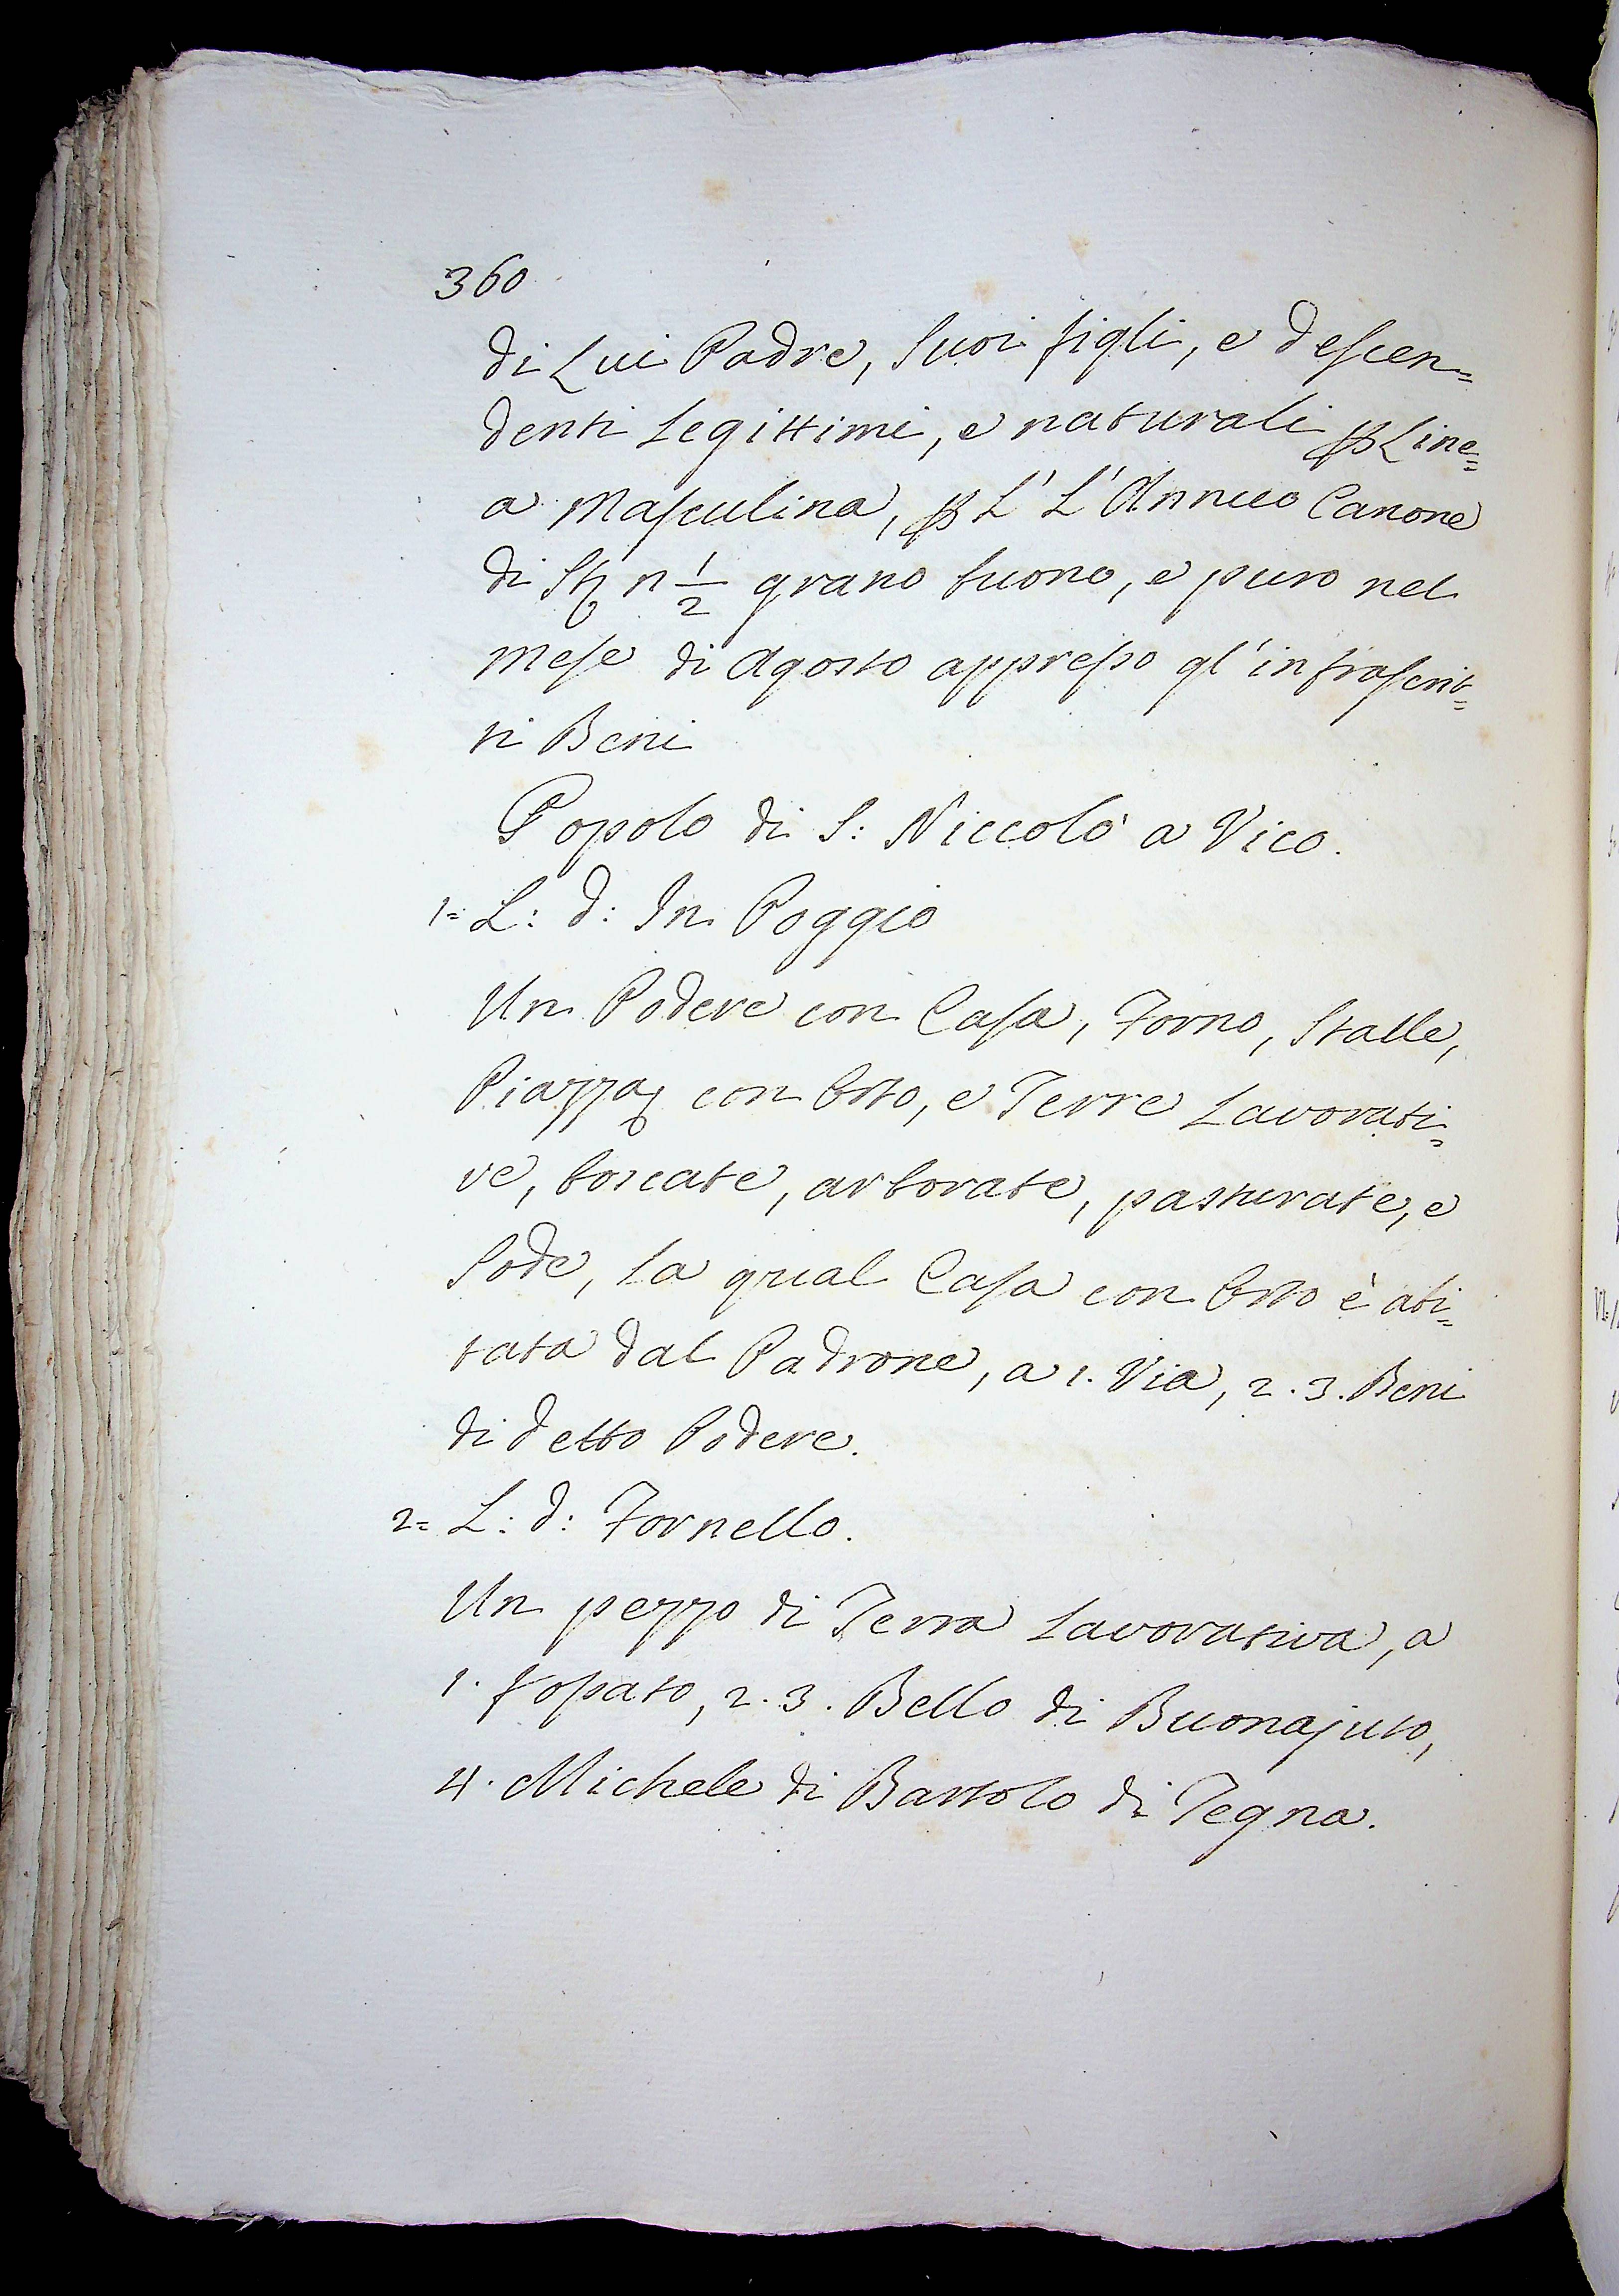 360
di Lui Padre, Suoi figli, e descen=
denti Legittimi, e naturali ꝑ Line=
a Masculina, ꝑ L' L'Annuo Canone
di St n 1/2 grano buono, e puro nel
Mese di Agosto appresso gl'infrascrit=
ti Beni
Popolo di S: Niccolò a Vico.
1= L: d: In Poggio
Un Podere con Casa, Forno, Stalle,
Piazza, con Orto, e Terre Lavorati=
ve, boscate, arborate, pasturate, e
Sode, La qual Casa con Orto è abi=
tata dal Padrone, a 1. Via, 2. 3. Beni
di detto Podere.
2= L: d: Fornello.
Un pezzo di Terra Lavorativa, a
1. Fossato, 2. 3. Bello di Buonajuto,
4. Michele di Bartolo di Tegna.